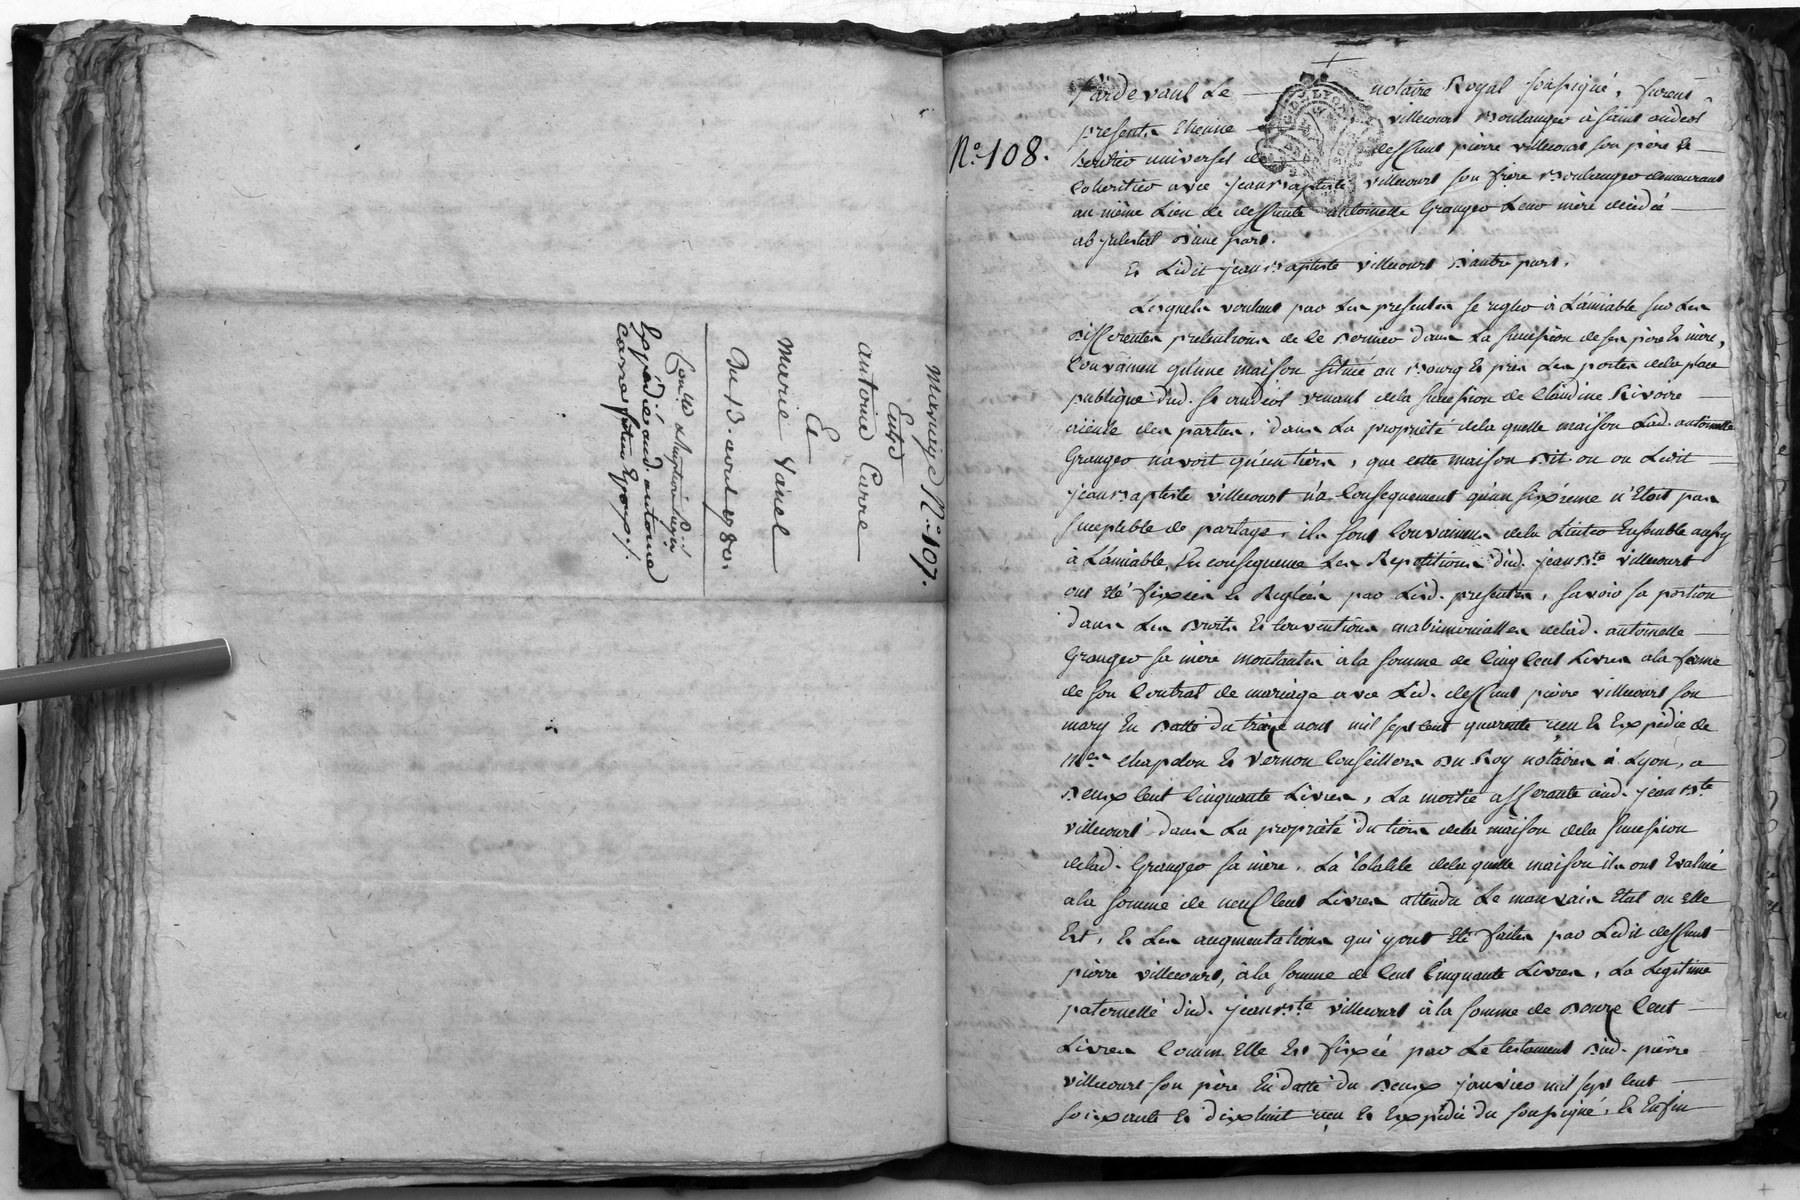 Mariage N.° 107.
Entre
antoine Carre
Et
Marie Vainel
Du 13. avril 1780.
Expédié aud. antoine
Carre futur Epoux
N.° 108.
Pardevant Le notaire Royal soussigné, furent
presents Etienne villecourt Boulanger à saint andéol
heritier universel de deffunt pierre villecourt son père Et
Coheritier avec jean Baptiste villecourt son frère Boulanger demeurant
au même Lieu de deffunte antoinette Granger Leur mère décédée
ab intestat D'une part.
Et Ledit jean Baptiste villecourt D'autre part.
Lesquels voulant par Les presentes se regler à L'amiable sur Les
Differentes pretentions de ce Dernier dans La succession de ses père Et mère,
Convaincu qu'une maison située au Bourg Et près Les portes de la place
publique dud. st andéol venant de la succession de Claudine Rivoire
ayeule des parties, dans La proprieté de la quelle maison Lad. antoinette
Granger n'avoit qu'un tiers, que cette maison Dit on ou Ledit
jean Baptiste villecourt n'a Consequemment qu'un sixieme n'Etoit pas
susceptible de partage, ils sont Convenus de la Liciter Ensemble aussy
à L'amiable, En consequence Les Repetitions dud. jean Bte villecourt
ont été fixées Et Reglées par Lesd. presentes, savoir sa portion
dans Les Droits Et Conventions matrimonialles de lad. antoinette
Granger sa mère montantes à la somme de Cinq Cent Livres a la forme
de son Contrat de mariage avec Led. deffunt pierre villecourt son
mary En Datte du treize aout mil sept cent quarante reçu Et Expedié de
Mes chapdon Et vernon Conseillers Du Roy notaires à Lyon, a
Deux Cent Cinquante Livres, La moitié afferante aud. jean Bte
villecourt dans La proprieté du tiers de la maison de la succession
de lad. Granger sa mère, La totalité de la quelle maison ils ont Evalué
a la somme de neuf Cent Livres attendu Le mauvais Etat ou Elle
Est, Et Les augmentations qui y ont été faites par Ledit deffunt
pierre villecourt, à la somme de Cent Cinquante Livres, La Legitime
paternelle dud. jean Bte villecourt à la somme de Douze Cent
Livres Comm. Elle Est fixée par Le testament Dud. pierre
villecourt son père En datte du Deux janvier mil sept Cent
soixante Et dix huit reçu Et Expedié du soussigné, Et Enfin